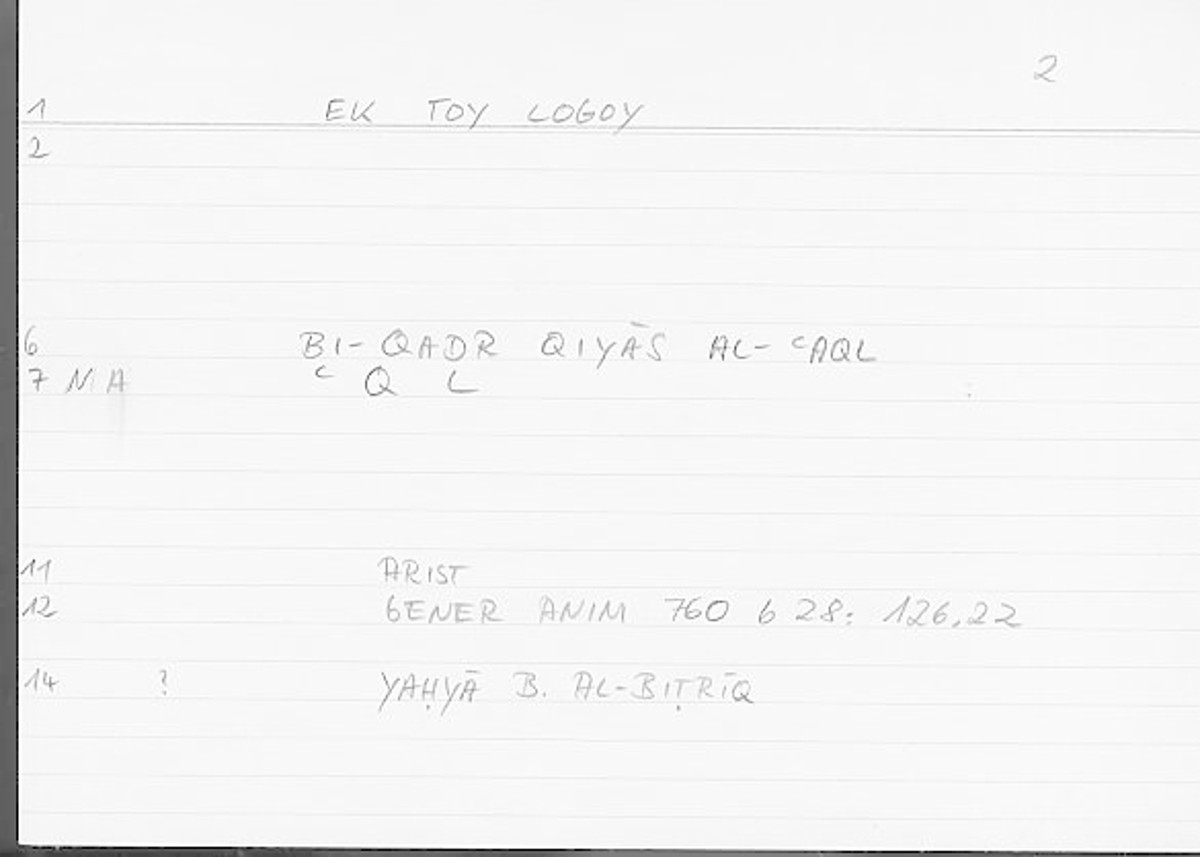 2
1 EK TOY LOGOY
2
6 BI-QADR QIYĀS AL-ᶜAQL
7 NA ᶜ Q L
11 ARIST
12 GENER ANIM 760 b 28: 126,22
14 ? YAḤYĀ B. AL-BIṬRĪQ